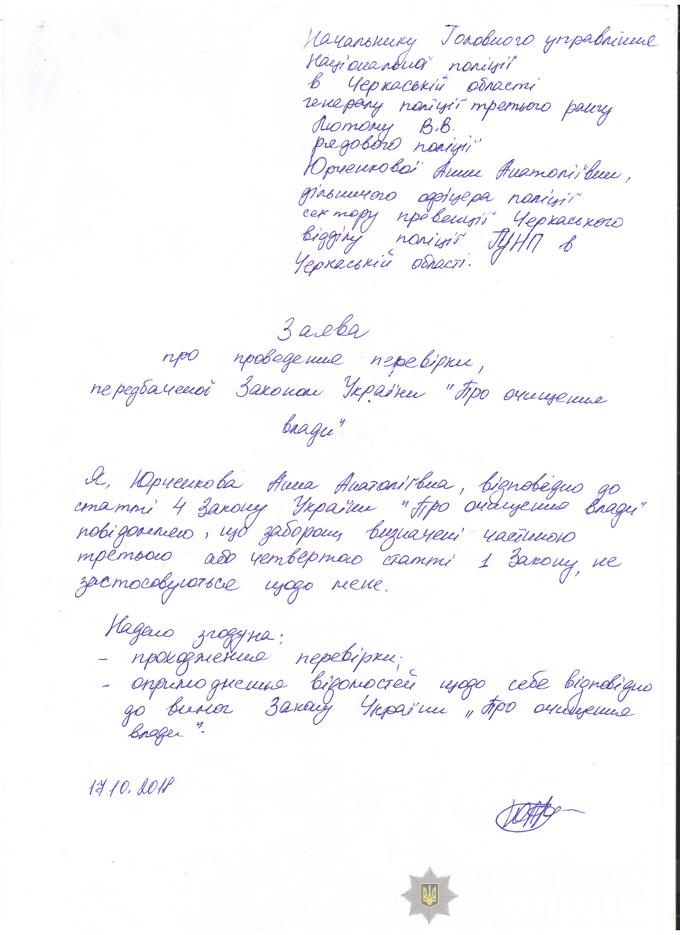 Начальнику Головного управління
Національної поліції
в Черкаській області
генералу поліції третього рангу
Лютому В.В.
рядового поліції
Юрченкової Анни Анатоліївни,
дільничого офіцера поліції
сектору превенції Черкаського
відділу поліції ГУНП в
Черкаській області.
Заява
про проведення перевірки,
передбаченої Законом України "Про очищення
влади"
Я, Юрченкова Анна Анатоліївна, відповідно до
статті 4 Закону України "Про очищення влади"
повідомляю, що заборони визначені частиною
третьою або четвертою статті 1 Закону, не
застосовуються щодо мене.
Надаю згоду на:
- проходження перевірки;
- оприлюднення відомостей щодо себе відповідно
до вимог Закону України „Про очищення
влади".
17.10.2018